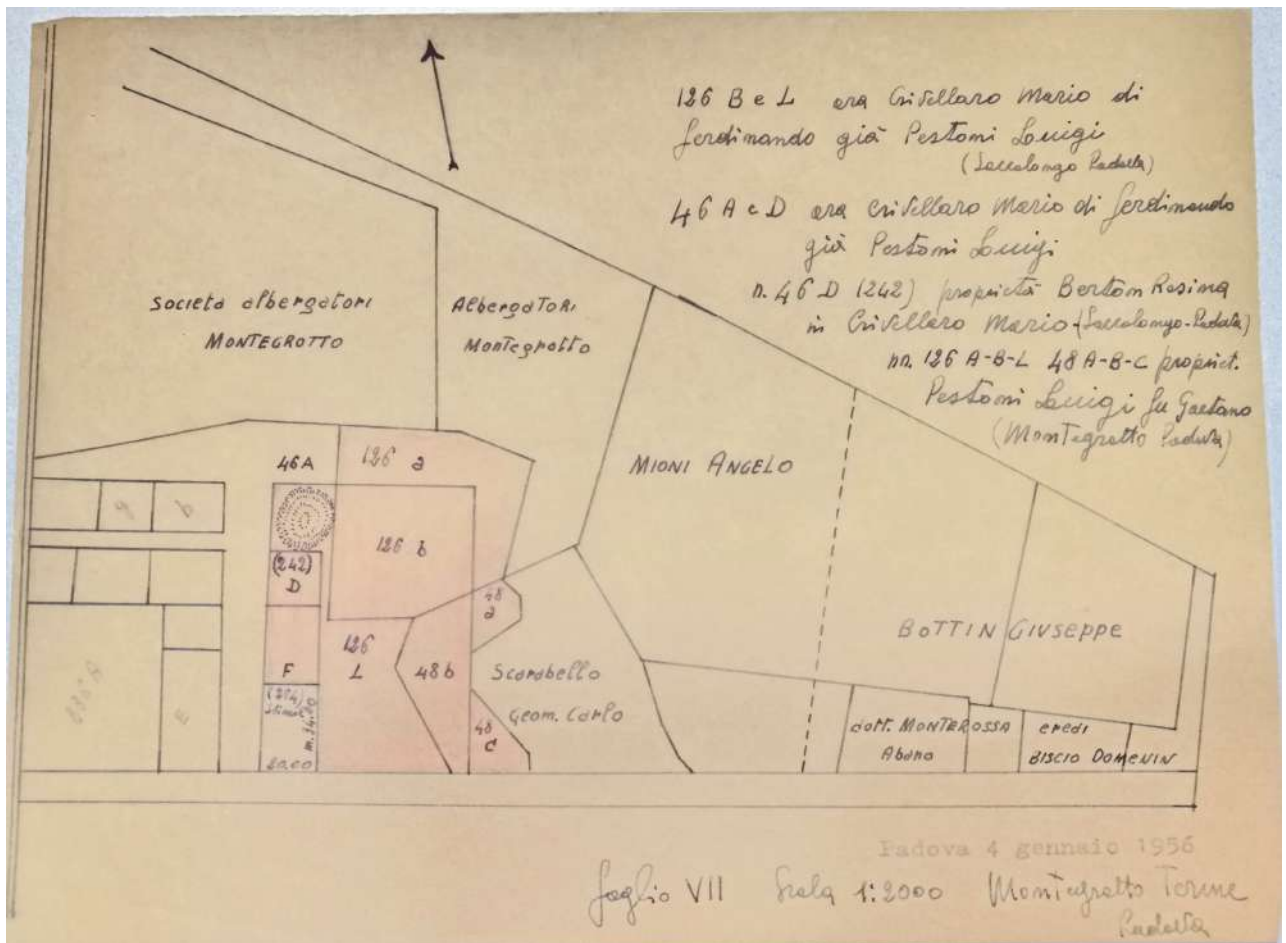 126 B e L ora Crivellaro Mario di
Ferdinando già Pestoni Luigi
(Saccolongo Padova)
46 A e D ora Crivellaro Mario di Ferdinando
già Pestoni Luigi
n. 46 D (242) proprietà Berton Resina
in Crivellaro Mario (Saccolongo-Padova)
nn. 126 A-B-L 48 A-B-C propriet.
Pestoni Luigi fu Gaetano
(Montegrotto Padova)
Società albergatori
MONTEGROTTO
Albergatori
Montegrotto
MIONI ANGELO
46A
126 a
126 b
(242)
D
48
a
126
L
F
48b
48
C
Scarabello
Geom. Carlo
BOTTIN GIUSEPPE
(254)
m. 34.20
20,00
dott. MONTEROSSA
Abano
eredi
BISCIO DOMENIN
Padova 4 gennaio 1956
foglio VII Scala 1:2000 Montegrotto Terme
Padova